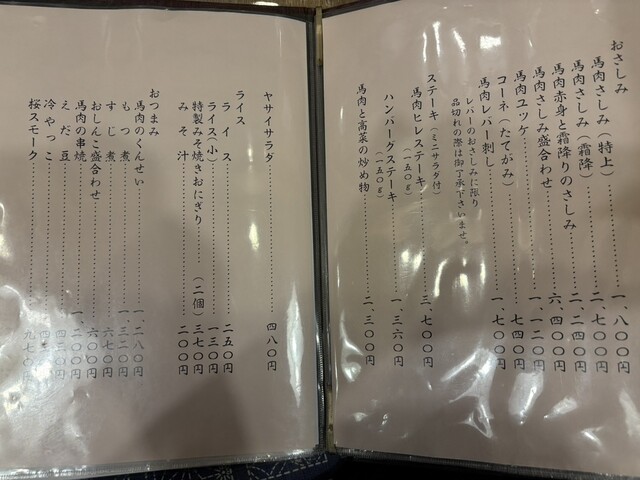 おさしみ
馬肉さしみ(特上)
馬肉さしみ(霜降)……二、七〇〇円
馬赤身と霜降りのさしみ……二、二四〇円
馬肉さしみ盛合わせ……
馬肉ユッケ……一、一二〇円
コーネ(たてがみ)……七四〇円
馬肉レバー刺し……一、七〇〇円
レバーのおさしみに限り
品切れの際は御了承下さいませ。
ステーキ(ミニサラダ付)
馬肉ヒレステーキ(一五〇g)……三、七〇〇円
ハンバーグステーキ(一五〇g)……一、三六〇円
馬肉と高菜の炒め物……二、三〇〇円
ヤサイサラダ……四八〇円
ライス
ライス……二五〇円
ライス(小)……一三〇円
特製みそ焼きおにぎり……(二個)三七〇円
みそ汁……二〇〇円
おつまみ
馬肉のくんせい……一、二八〇円
もつ煮……一、三二〇円
すじ煮……六七〇円
おしんこ盛合わせ……六〇〇円
馬肉の串焼……一、二〇〇円
えだ豆……四三〇円
冷やっこ……円
桜スモーク……九七〇円